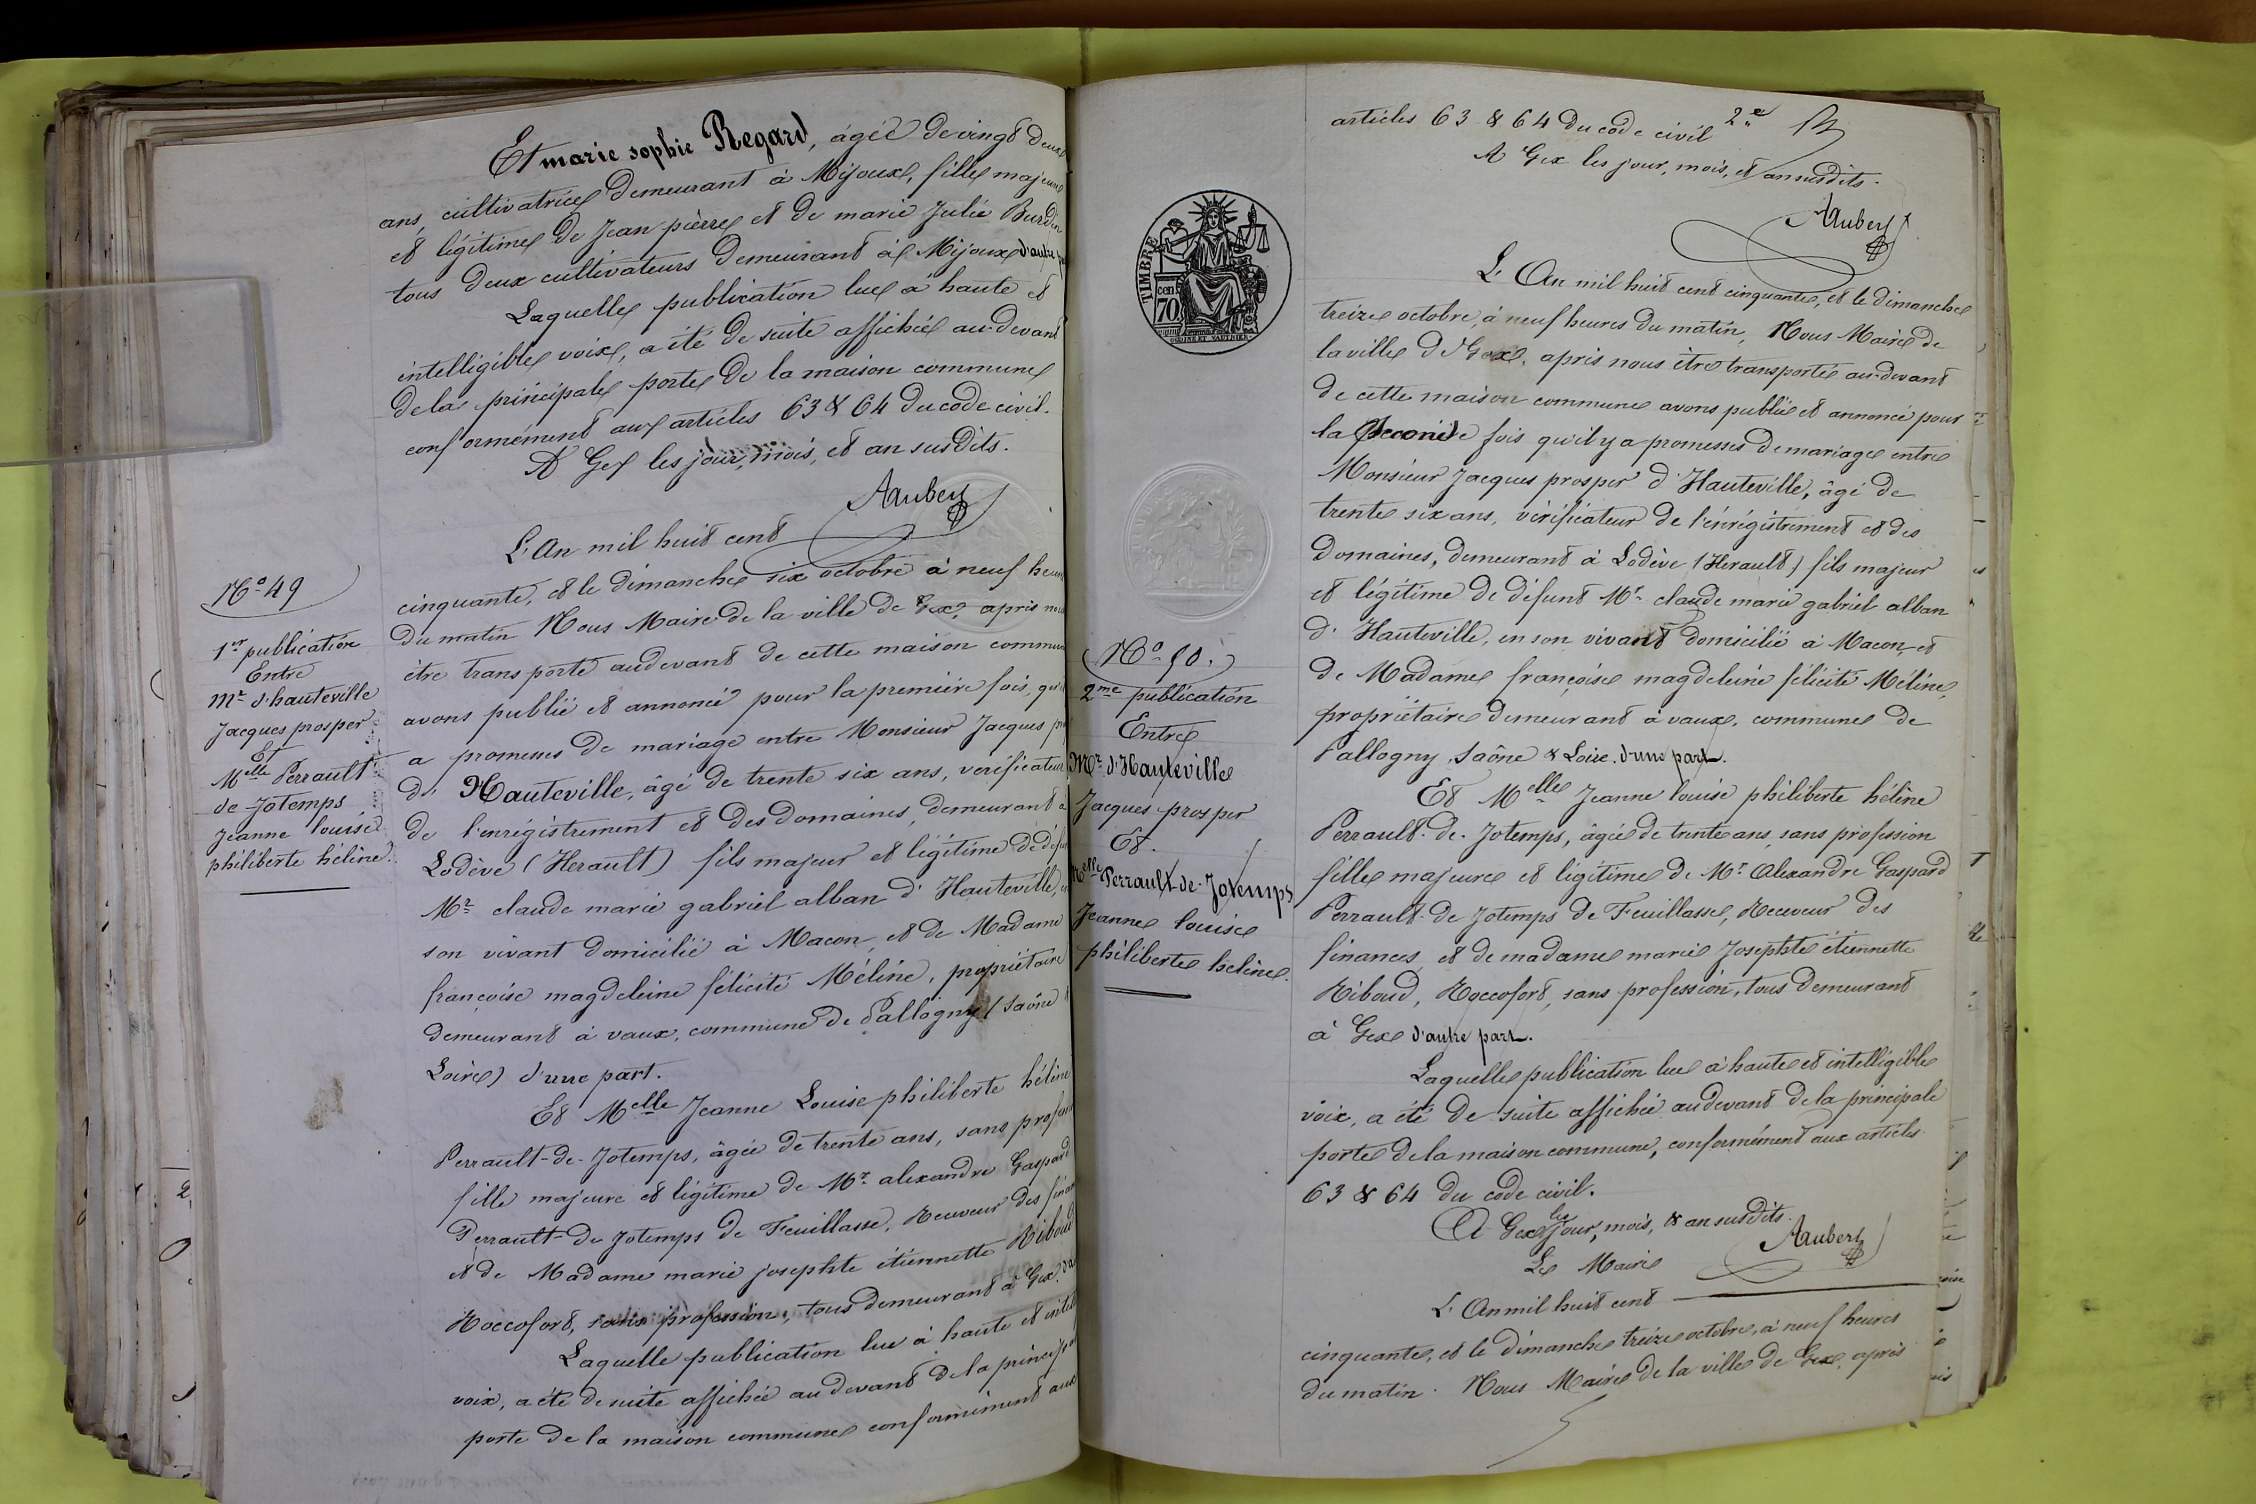 Et marie sophie Regard, âgée de vingt deux
ans, cultivatrice demeurant à Mijoux, fille majeure
et légitime de Jean pierre et de marie Julie Burdin
tous deux cultivateurs demeurant à Mijoux d'autre
Laquelle publication lue à haute et
intelligible voix, a été de suite affichée au-devant
de la principale porte de la maison commune
conformément aux articles 63 & 64 du code civil.
A Gex les jour, mois, et an susdits.
Aubery
N° 49
1re publication
Entre
Mr d'hauteville
Jacques prosper
Et
Melle Perrault
de Jotemps
Jeanne louise
philiberte hélène.
L'An mil huit cent
cinquante, et le dimanche six octobre à neuf heures
du matin Nous Maire de la ville de Gex, après nous
être transporté audevant de cette maison commune
avons publié et annoncé pour la première fois, qu'il
a promesses de mariage entre Monsieur Jacques pr
d' Hauteville, âgé de trente six ans, vérificateur
de l'enrégistrement et des domaines, demeurant à
Lodève (Herault) fils majeur et légitime de défu
Mr claude marie gabriel alban d'Hauteville, en
son vivant domicilié à Macon, et de Madame
françoise magdeleine félicité Méline, propriétaire
demeurant à vaux, commune de Pallogny (Saône &
Loire) d'une part.
Et Melle Jeanne Louise philiberte hélène
Perrault-de-Jotemps, âgée de trente ans, sans profess
fille majeure et légitime de Mr alexandre Gaspard
Perrault-de Jotemps de Feuillasse, Receveur des finan
et de Madame marie josephte étiennette Riboud
Roccofort, sans profession, tous demeurant à Gex, d'a
Laquelle publication lue à haute et intel
voix, a été de suite affichée au devant de la princip
porte de la maison commune conformément aux
articles 63 & 64 du code civil 2e
A Gex les jour, mois, et an susdits.
Aubery
TIMBRE
70 cen
N° 50.
2me publication
Entre
Mr d'Hauteville
Jacques prosper
Et.
Melle Perrault-de-Jotemps
Jeanne louise
philiberte helène.
L'An mil huit cent cinquante, et le dimanche
treize octobre, à neuf heures du matin, Nous Maire de
la ville de Gex, après nous être transporté au-devant
de cette maison commune avons publié et annoncé pour
la seconde fois qu'il y a promesses de mariage entre
Monsieur Jacques prosper d'Hauteville, âgé de
trente six ans, vérificateur de l'enrégistrement et des
Domaines, demeurant à Lodève (Herault) fils majeur
et légitime de défunt Mr claude marie gabriel alban
d'Hauteville, en son vivant domicilié à Macon et
de Madame françoise magdeleine félicité Méline,
propriétaire demeurant à vaux, commune de
Pallogny, Saône & Loire. d'une part.
Et Melle Jeanne louise philiberte hélène
Perrault-de-Jotemps, âgée de trente ans, sans profession
fille majeure et légitime de Mr Alexandre Gaspard
Perrault-de Jotemps de Feuillasse, Receveur des
finances et de madame marie Josephte étiennette
Riboud, Roccofort, sans profession, tous demeurant
à Gex d'autre part.
Laquelle publication lue à haute et intelligible
voix, a été de suite affichée audevant de la principale
porte de la maison commune, conformément aux articles
63 & 64 du code civil.
A Gex les jour, mois, & an susdits.
Le Maire
Aubery
L'An mil huit cent
cinquante, et le dimanche treize octobre, à neuf heures
du matin. Nous Maire de la ville de Gex, après